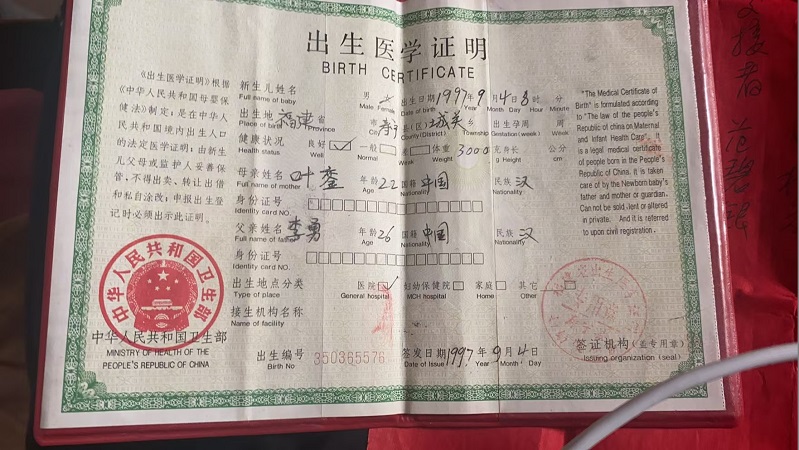 出生医学证明
BIRTH CERTIFICATE
《出生医学证明》根据
《中华人民共和国母婴保
健法》制定,是在中华人
民共和国境内出生人口
的法定医学证明,由新生
儿父母或监护人妥善保
管、不得出卖、转让出借
和私自涂改,申报出生登
记时必须出示此证明。
中华人民共和国卫生部
中华人民共和国卫生部
MINISTRY OF HEALTH OF THE
PEOPLE'S REPUBLIC OF CHINA
新生儿姓名 男 女 出生日期1997年9月4日8时 分
Full name of baby Male Female Date of birth Year Month Day Hour Minute
出生地 福建省 市 县(区) 城关乡 出生孕周 周
Place of birth Province City County (District) Township Gestation (week) Week
健康状况 良好 一般 差 体重 3000克 身长 公分
Health status Well Normal Weak Weight g Height cm
母亲姓名 叶 年龄22 国籍 中国 民族 汉
Full name of mother Age Nationality Nationality
身份证号
Identity card NO.
父亲姓名 李勇 年龄26 国籍 中国 民族 汉
Full name of father Age Nationality Nationality
身份证号
Identity card NO.
出生地点分类 医院 妇幼保健院 家庭 其它
Type of place General hospital MCH hospital Home Other
接生机构名称
Name of facility
出生编号 350365576 签发日期1997年9月4日
Birth No Date of Issue Year Month Day
"The Medical Certificate of
Birth" is formulated according
to "The law of the people's
Republic of china on Maternal
and Infant Health Care". It
is a legal medical certificate
of people born in the People's
Republic of China. It is taken
care of by the Newborn baby's
father and mother or guardian.
Can not be sold, lent or altered
in private. And it is referred
to upon civil registration.
签证机构(盖专用章)
Issuing organization (seal)
接者